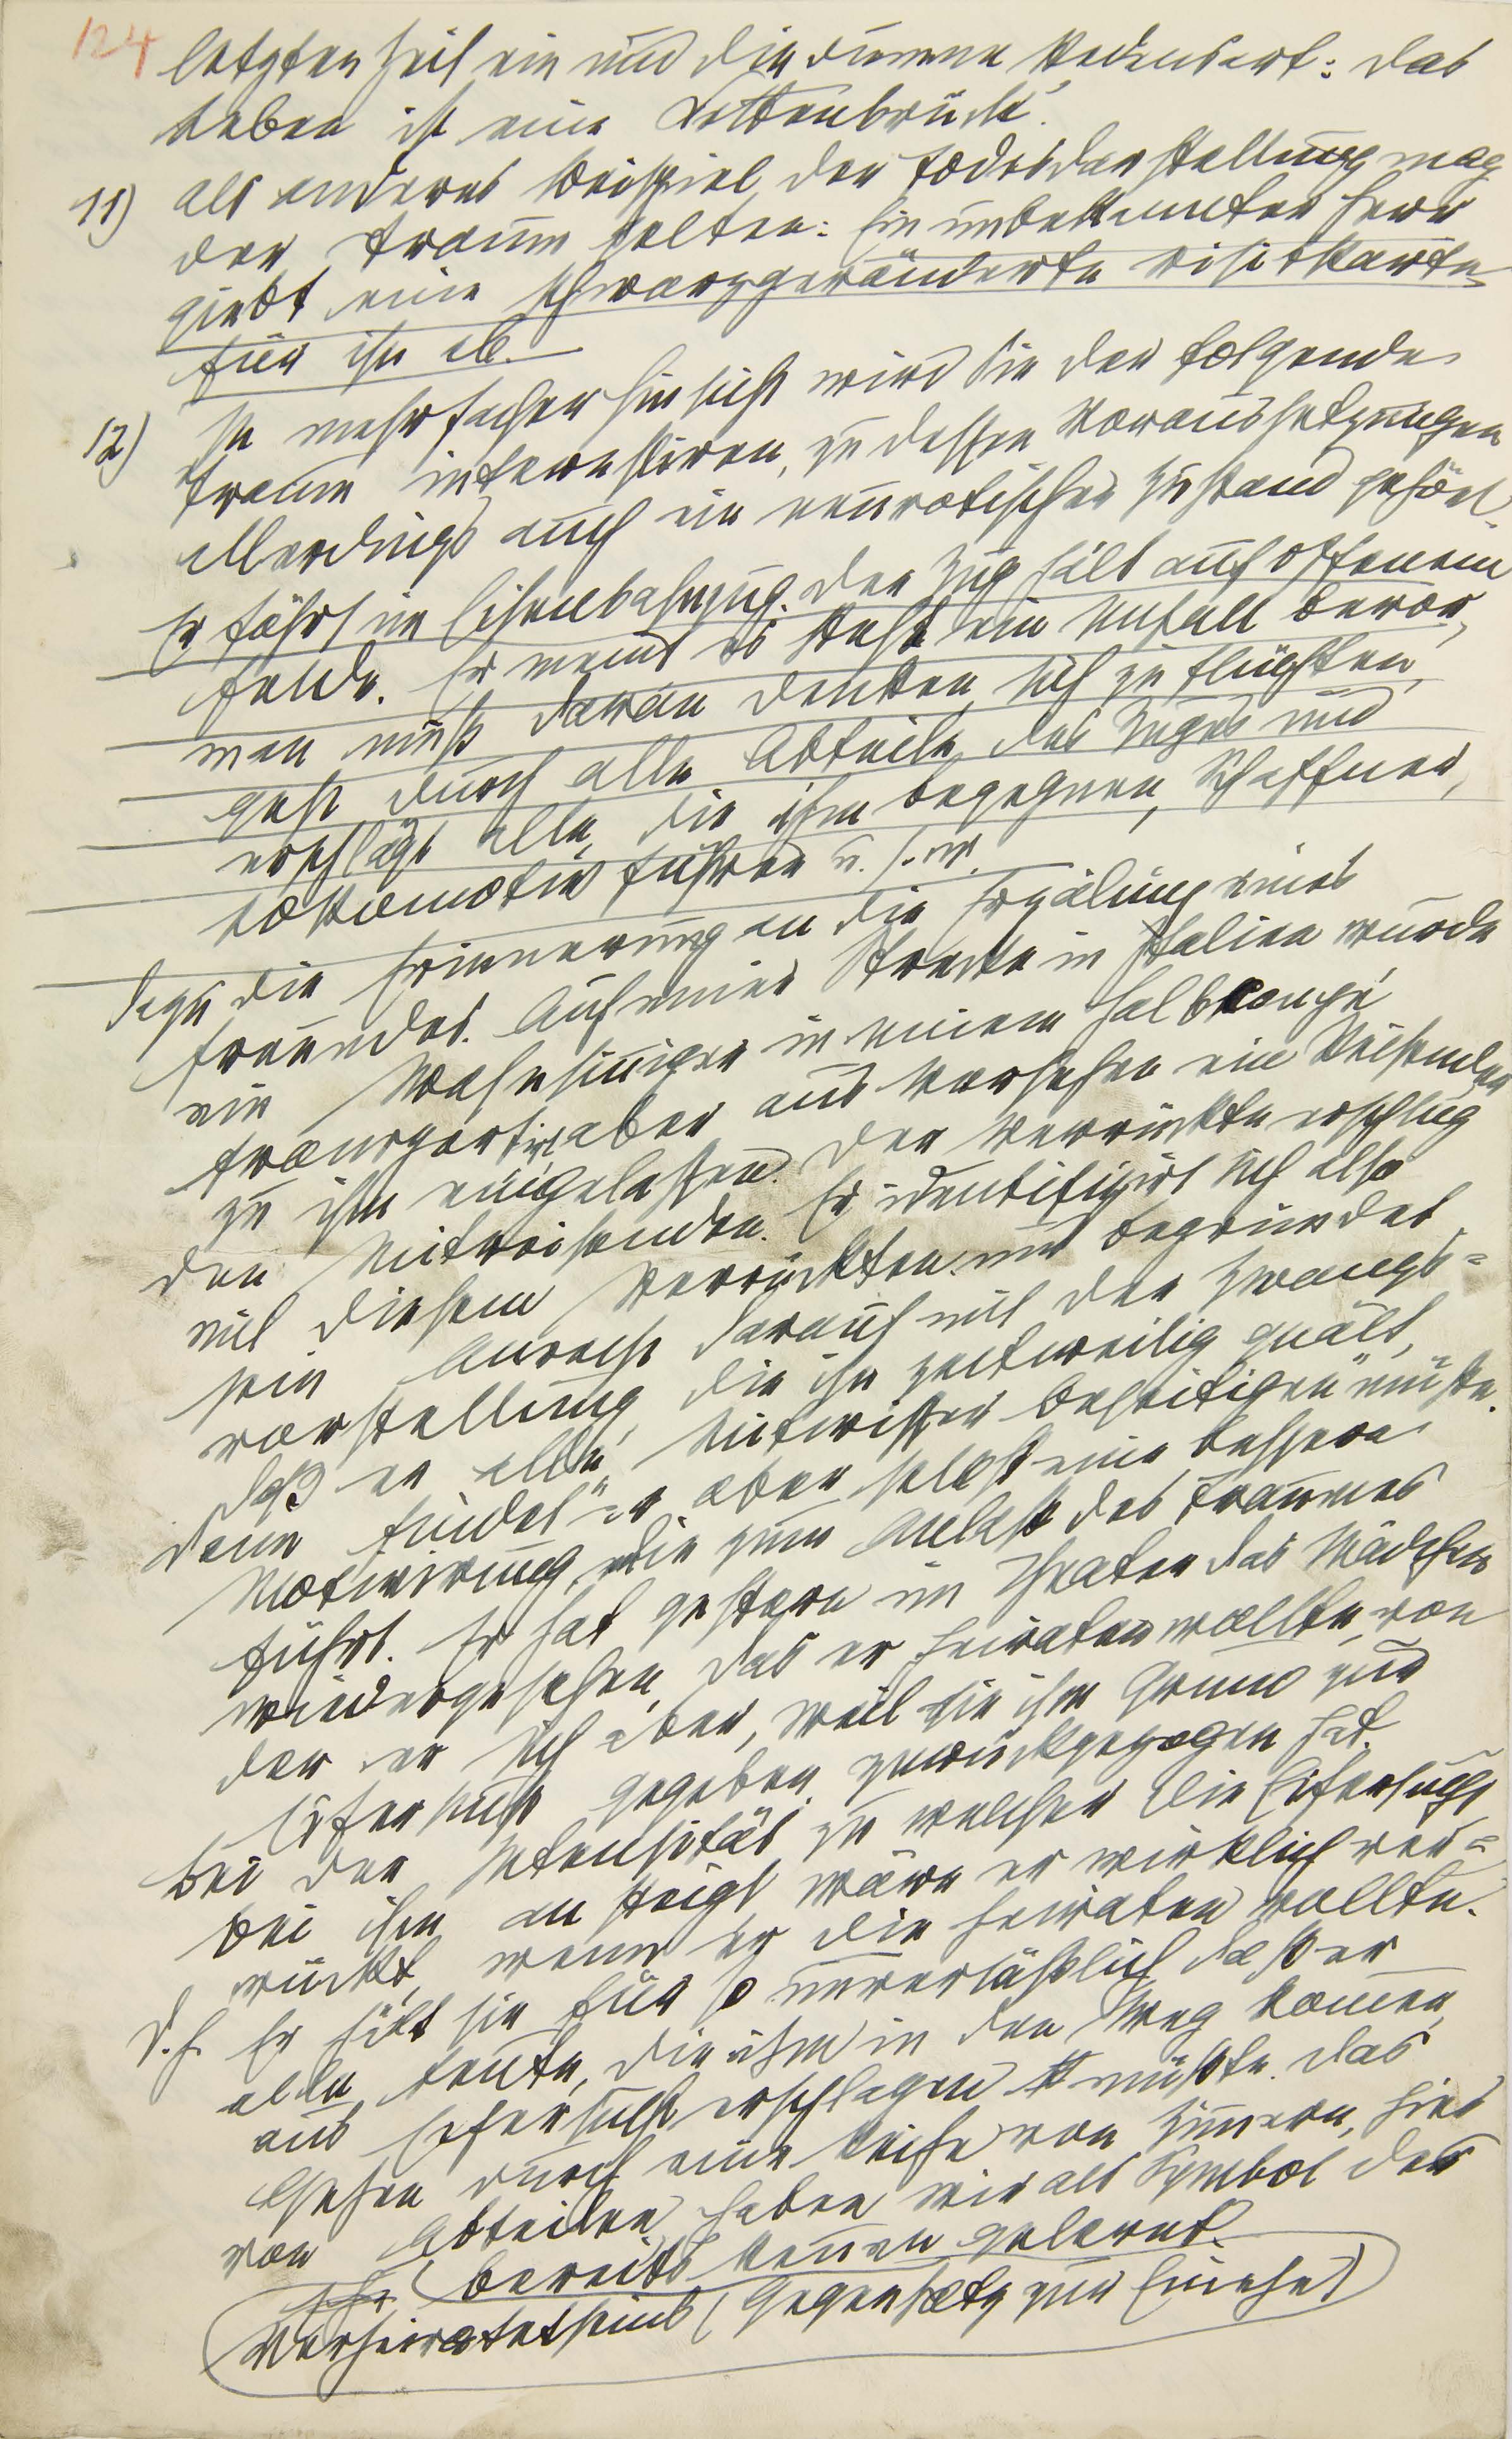 124
letzten Zeit ein und die dumme Redensart: Das
Leben ist eine Kettenbrück'.
11) Als anderes Beispiel der Todesdarstellung mag
der Traum gelten: Ein unbekannter Herr
giebt eine schwarzgeränderte Visitkarte
für ihn ab. —
12) In mehrfacher Hinsicht wird Sie der folgende
Traum interessiren, zu dessen Voraussetzungen
allerdings auch ein neurotischer Zustand gehört.
Er fährt im Eisenbahnzug. Der Zug hält auf offenem
Felde. Er meint es steht ein Unfall bevor,
man muß daran denken, sich zu flüchten,
geht durch alle Abteile des Zuges und
erschlägt alle, die ihm begegnen, Schaffner,
Lokomotivführer u.s.w.
Dazu die Erinnerung an die Erzälung eines
Freundes. Auf einer Strecke in Italien wurde
ein Wahnsinniger in einem Halbkoupé
transportirt, aber aus Versehen ein Reisender
zu ihm eingelassen. Der Verrückte erschlug
den Mitreisenden. Er identifizirt sich also
mit diesem Verrückten und begründet
sein Anrecht darauf mit der Zwangs=
vorstellung, die ihn zeitweilig quält,
daß er alle „Mitwisser beseitigen" müsse.
Dann findet er aber selbst eine bessere
Motivirung, die zum Anlaß des Traumes
führt. Er hat gestern im Theater das Mädchen
wiedergesehen, das er heiraten wollte, von
der er sich aber, weil sie ihm Grund zur
Eifersucht gegeben, zurückgezogen hat.
Bei der Intensität, zu welcher die Eifersucht
bei ihm ansteigt, wäre er wirklich ver=
rückt, wenn er die heiraten wollte.
D.h. Er hält sie für so unverläßlich, daß er
alle Leute, die ihm in den Weg kom̅en,
aus Eifersucht erschlagen müßte. Das
Gehen durch eine Reihe von Zim̅ern, hier
von Abteilen haben wir als Symbol des
bereits kennen gelernt.
Verheiratetseins (Gegensatz zur Einehe)